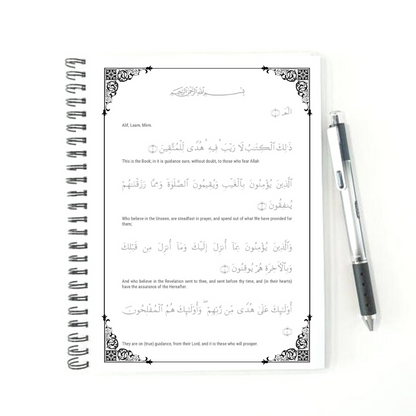 بِسْمِ ٱللَّهِ ٱلرَّحْمَٰنِ ٱلرَّحِيمِ
الٓمٓ ۝١
Alif, Laam, Mom.
ذَٰلِكَ ٱلْكِتَٰبُ لَا رَيْبَ ۛ فِيهِ ۛ هُدًى لِّلْمُتَّقِينَ ۝٢
This is the Book; in it is guidance sure, without doubt, to those who fear Allah
ٱلَّذِينَ يُؤْمِنُونَ بِٱلْغَيْبِ وَيُقِيمُونَ ٱلصَّلَوٰةَ وَمِمَّا رَزَقْنَٰهُمْ
يُنفِقُونَ ۝٣
Who believe in the Unseen, are steadfast in prayer, and spend out of what We have provided for
them;
وَٱلَّذِينَ يُؤْمِنُونَ بِمَآ أُنزِلَ إِلَيْكَ وَمَآ أُنزِلَ مِن قَبْلِكَ
وَبِٱلْءَاخِرَةِ هُمْ يُوقِنُونَ ۝٤
And who believe in the Revelation sent to thee, and sent before thy time, and (in their hearts)
have the assurance of the Hereafter.
أُو۟لَٰٓئِكَ عَلَىٰ هُدًى مِّن رَّبِّهِمْ ۖ وَأُو۟لَٰٓئِكَ هُمُ ٱلْمُفْلِحُونَ
۝٥
They are on (true) guidance, from their Lord, and it is these who will prosper.